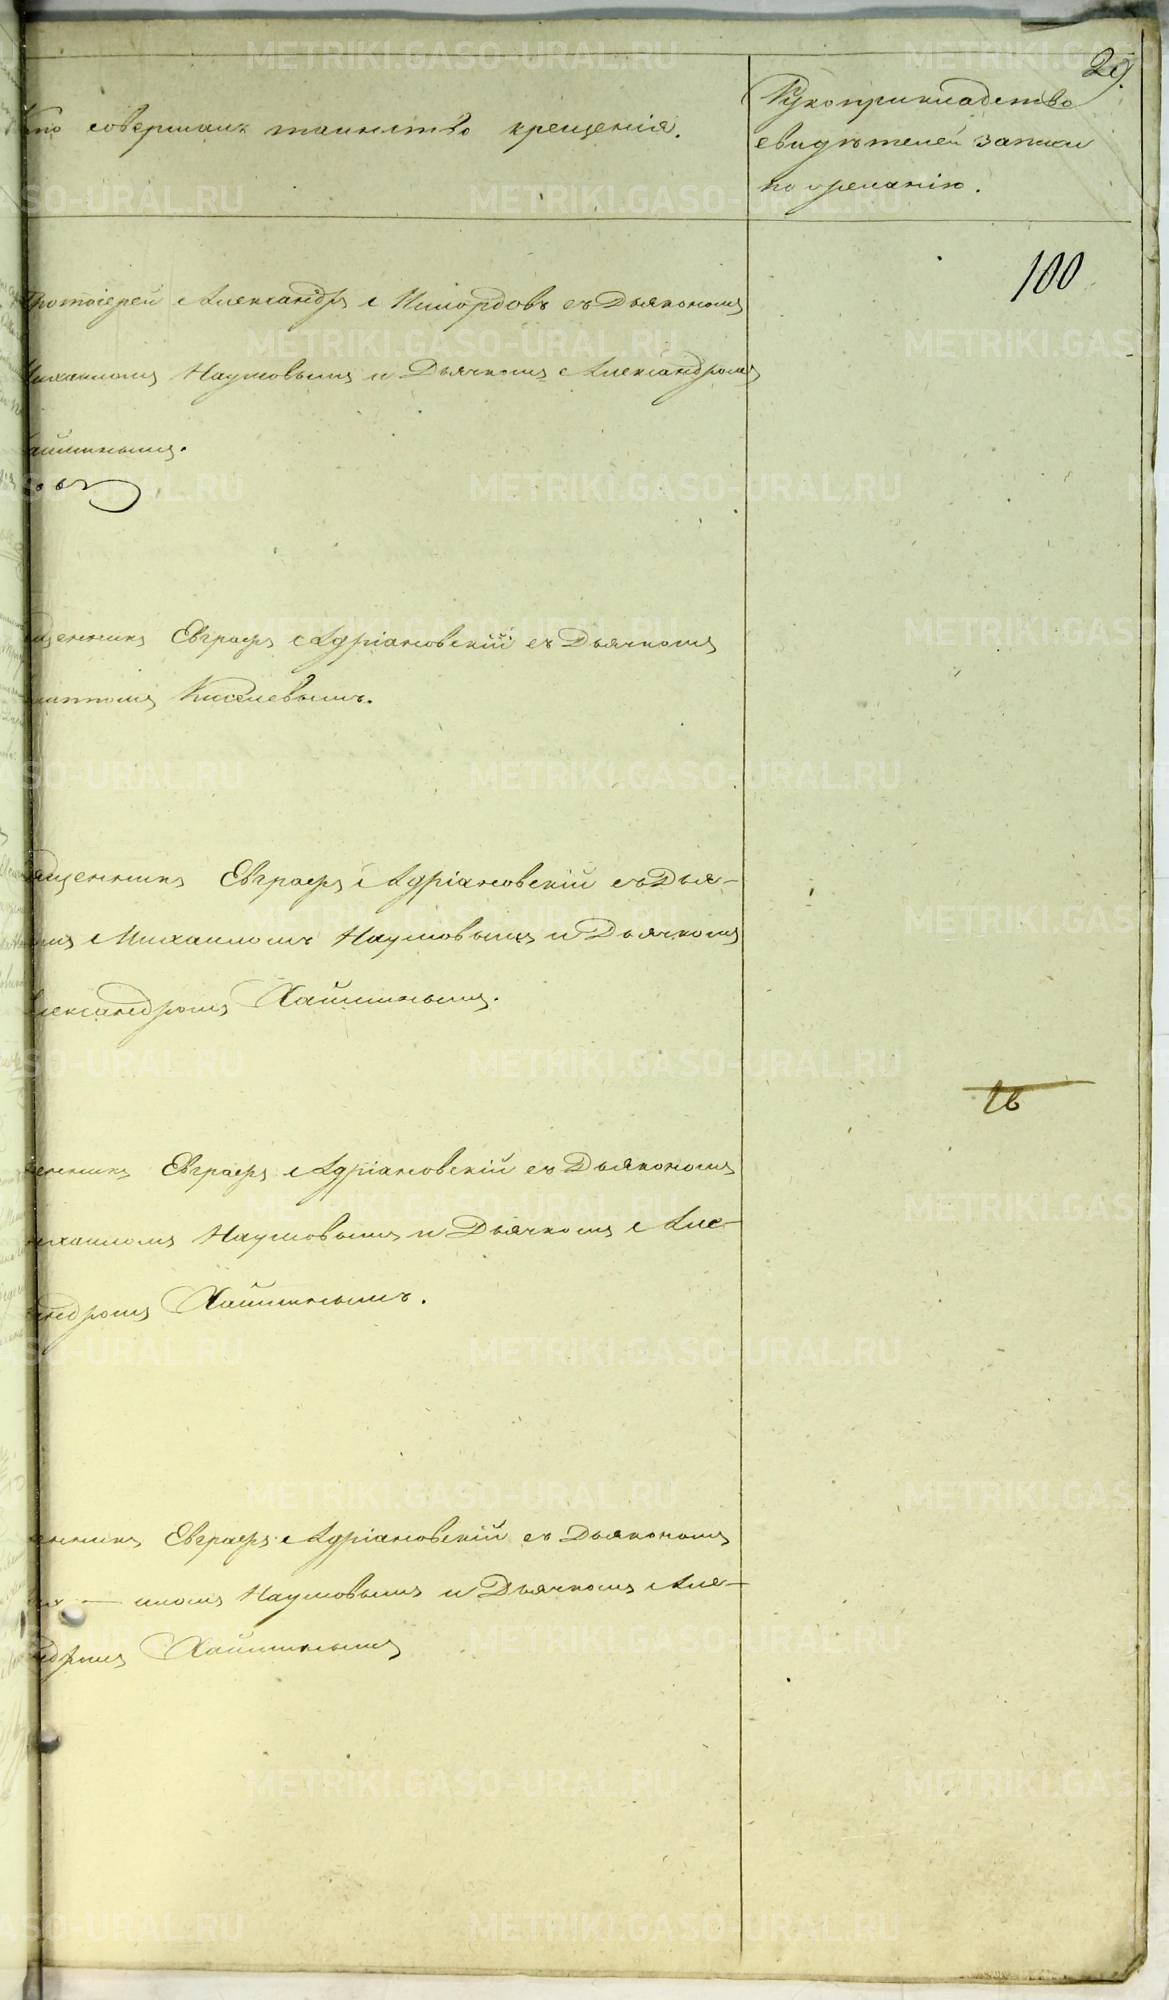 29.
Кто совершалъ таинство крещенія.
Рукоприкладство
свидѣтелей записи
по желанію.
100
Протоіерей Александръ съ Діакономъ
Михаиломъ Наумовымъ и Дьячкомъ Александромъ
Хайминымъ.
священникъ Евграфъ Адріановскій съ Дьячкомъ
Киселевымъ.
священникъ Евграфъ Адріановскій съ Дья-
Михаиломъ Наумовымъ и Дьячкомъ
Александромъ Хайминымъ.
16
священникъ Евграфъ Адріановскій съ Дьякономъ
Михаиломъ Наумовымъ и Дьячкомъ Але-
ксандромъ Хайминымъ.
священникъ Евграфъ Адріановскій съ Дьякономъ
Мих — иломъ Наумовымъ и Дьячкомъ Але-
ксандромъ Хайминымъ
METRIKI.GASO-URAL.RU